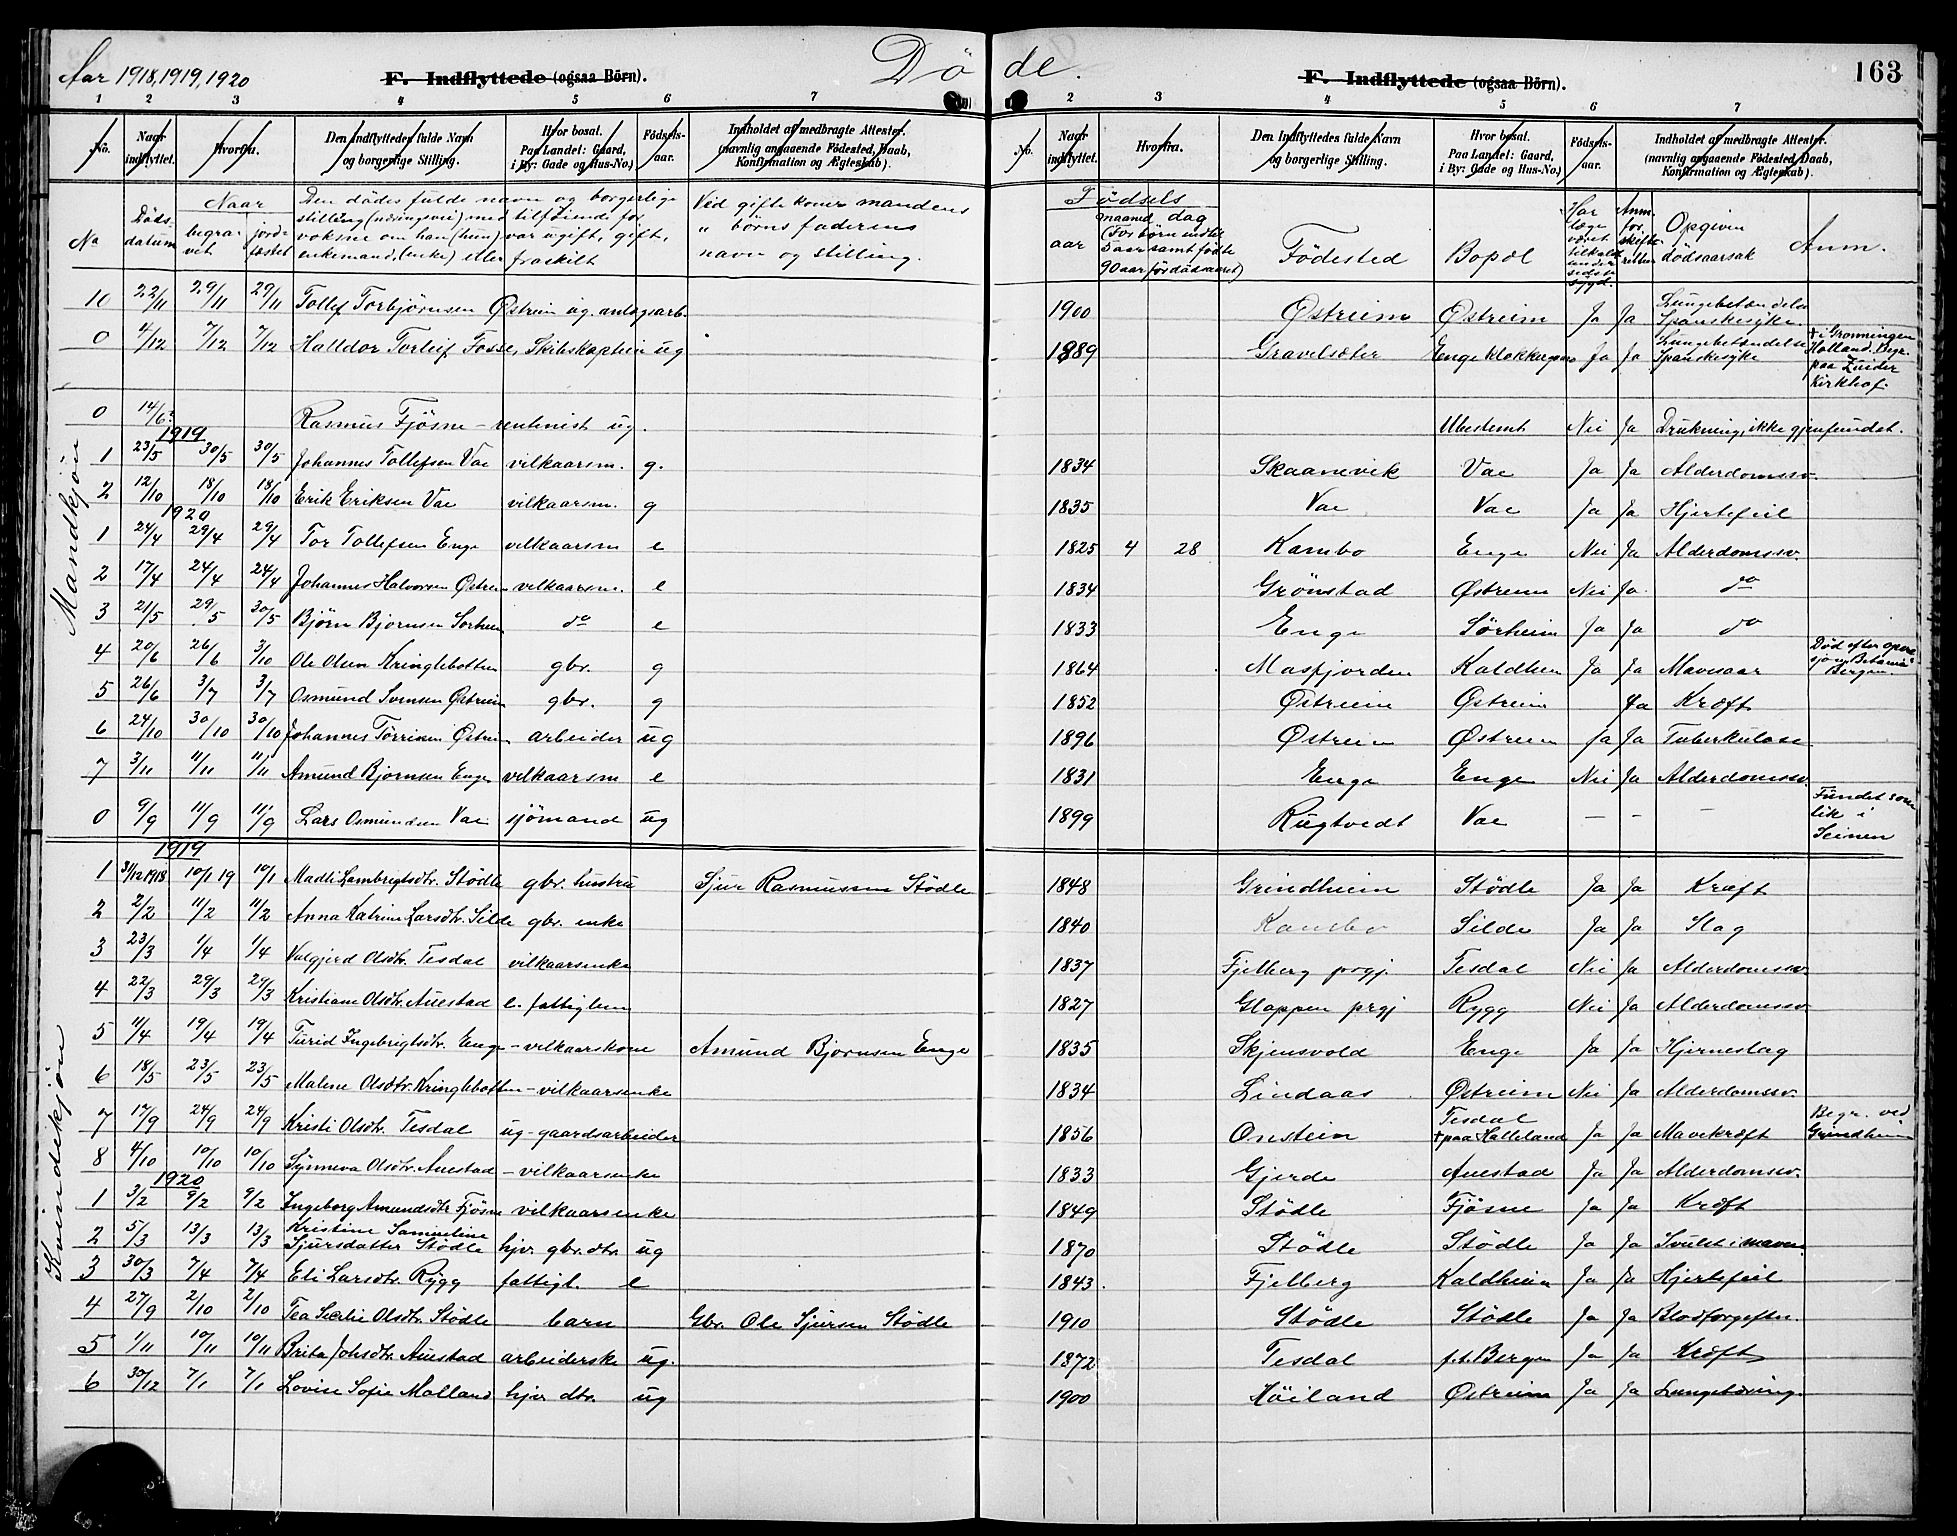 Aar 1918, 1919, 1920
F. Indflyttede (ogsaa Börn).
Dö de.
F. Indflyttede (ogsaa Börn).
163
1 2 3 4 5 6 7
2 3 4 5 6 7
No. Naar indflyttet. Hvorfra. Den Indflyttedes fulde Navn og borgerlige Stilling. Hvor bosat. Paa Landet: Gaard, i By: Gade og Hus-No.) Födsels-aar. Indholdet af medbragte Attester. (navnlig angaaende Födested, Daab, Konfirmation og Ægteskab).
No. Naar indflyttet. Hvorfra. Den Indflyttedes fulde Navn og borgerlige Stilling. Hvor bosat. Paa Landet: Gaard, i By: Gade og Hus-No.) Födsels-aar. Indholdet af medbragte Attester. (navnlig angaaende Födested, Daab, Konfirmation og Ægteskab).
No Döds datum Naar begravet jordfæstet Den dödes fulde navn og borgerlige stilling (næringsvei) med tilföiende for voksne om han (hun) var ugift, gift, enkemand, (enke) eller fraskilt Ved gifte koner mandens " börns faderens navn og stilling.
Födsels aar maaned dag (For börn indtil 5 aar samt födte 90 aar för dödsaaret) Födested Bopæl Har læge været tilkaldt under sidste sygd. Anm. for skifteretten Opgiven dödsaarsak Anm.
Mandkjön
10 22/11 29/11 29/11 Tollef Torbjörnsen Östreim ug. anlægsarb. 1900 Östreim Östreim Ja Ja Lungebetændelse Spanskesyke.
0 4/12 7/12 7/12 Halldor Torleif Fosse, Skibskaptein ug 1889 Gravelsæter Enge klokkergaard Ja Ja Lungebetændelse Spanskesyke + i Gronningen Holland. Begr. paa Zuider Kirkhof.
0 14/6? Rasmus Fjösne - rentenist ug. Ubestemt Nei Ja Drukning, ikke gjenfundet.
1919
1 23/5 30/5 30/5 Johannes Tollefsen Vae vilkaarsm. g. 1834 Skaanevik Vae Ja Ja Alderdomssv.
2 12/10 18/10 18/10 Erik Eriksen Vae vilkaarsm. g 1835 Vae Vae Ja Ja Hjertefeil
1920
1 24/4 29/4 29/4 Tor Tollefsen Enge vilkaarsm e 1825 4 28 Kambo Enge Nei Ja Alderdomssv.
2 17/4 24/4 24/4 Johannes Halvorsen Östreim vilkaarsm. e 1834 Grönstad Östreim Nei Ja. do
3 21/5 29/5 30/5 Björn Bjornsen Sorheim do e 1833 Enge Sörheim Ja Ja do
4 20/6 26/6 3/10 Ole Olsen Kringlebotten gbr. g 1864 Masfjorden Kaldheim Ja Ja Mavesaar Död efter operasjon Betania Bergen.
5 26/6 3/7 3/7 Osmund Svensen Östreim gbr. g 1852 Östreim Östreim Ja Kræft
6 24/10 30/10 30/10 Johannes Törrisen Östreim arbeider ug 1896 Östreim Östreim Ja Ja Tuberkulose
7 3/11 11/11 11/11 Amund Bjornsen Enge vilkaarsm e 1831 Enge Enge Nei Ja Alderdomssv.
0 9/9 11/9 11/9 Lars Osmundsen Vae sjömand ug 1899 Rugtvedt Vae - - - Fundet som lik i Seinen
Kvindekjön
1919
1 31/12 1918 10/1 19 10/1 Madli Lambrigtsdtr. Stödle gbr. hustru Sjur Rasmussen Stödle 1848 Grindheim Stödle Ja Ja Kræft
2 2/2 11/2 11/2 Anna Katrine Larsdtr. Silde gbr. enke 1840 Kambo Silde Ja Ja Slag
3 23/3 1/4 1/4 Valgjerd Olsdtr. Tesdal vilkaarsenke 1837 Fjelberg prgj. Tesdal Nei Ja Alderdomssv.
4 22/3 29/3 29/3 Kristiane Olsdtr. Auestad e. fattiglem 1827 Gloppen prgj Rygg Nei Ja Alderdomssv
5 11/4 19/4 19/4 Turid Ingebrigtsdtr. Enge - vilkaarskone Amund Bjornsen Enge 1835 Skjensvold Enge Ja Ja Hjerneslag
6 18/5 23/5 23/5 Malene Olsdtr. Kringlebotten - vilkaarsenke 1834 Lindaas Östreim Nei Ja Alderdomssv.
7 17/9 24/9 24/9 Kristi Olsdtr. Tesdal ug - gaardsarbeider 1856 Onstein Tesdal + paa Halleland Ja Ja Mavekræft Begr. ved Grindheim
8 4/10 10/10 10/10 Synneva Olsdtr. Auestad - vilkaarsenke 1833 Gjerde Auestad Ja Ja Alderdomssv.
1920
1 3/2 9/2 9/2 Ingeborg Amundsdtr Fjösne vilkaarsenke 1849 Stödle Fjösne Ja Ja Kræft
2 5/3 13/3 13/3 Kristine Samueline Sjursdatter Stödle hjv. gbr. dtr. ug 1870 Stödle Stödle Ja Ja Svulst i maven
3 30/3 7/4 7/4 Eli Larsdtr. Rygg fattigl. e 1843. Fjelberg Kaldheim Ja Ja Hjertefeil
4 27/9 2/10 2/10 Tea Secilie Olsdtr. Stödle barn Gbr. Ole Sjursen Stödle 1910 Stödle Stödle Ja Ja Blodforgiftn.
5 1/11 10/11 10/11 Brita Johsdtr. Auestad arbeiderske ug. 1872 Tesdal f.t. Bergen Ja Ja Kræft
6 30/12 7/1 7/1 Lovise Sofie Malland hjv. dtr. ug 1900 Höiland Östreim Ja Ja Lungetæring.